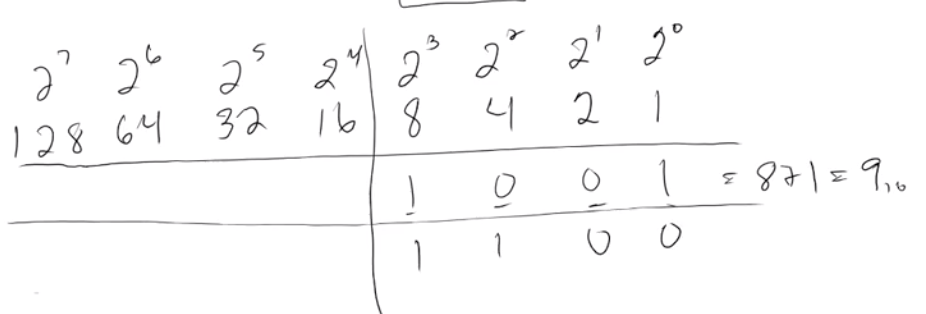 2⁷ 2⁶ 2⁵ 2⁴ 2³ 2² 2¹ 2⁰
128 64 32 16 8 4 2 1
1 0 0 1 = 8+1 = 9₁₀
1 1 0 0